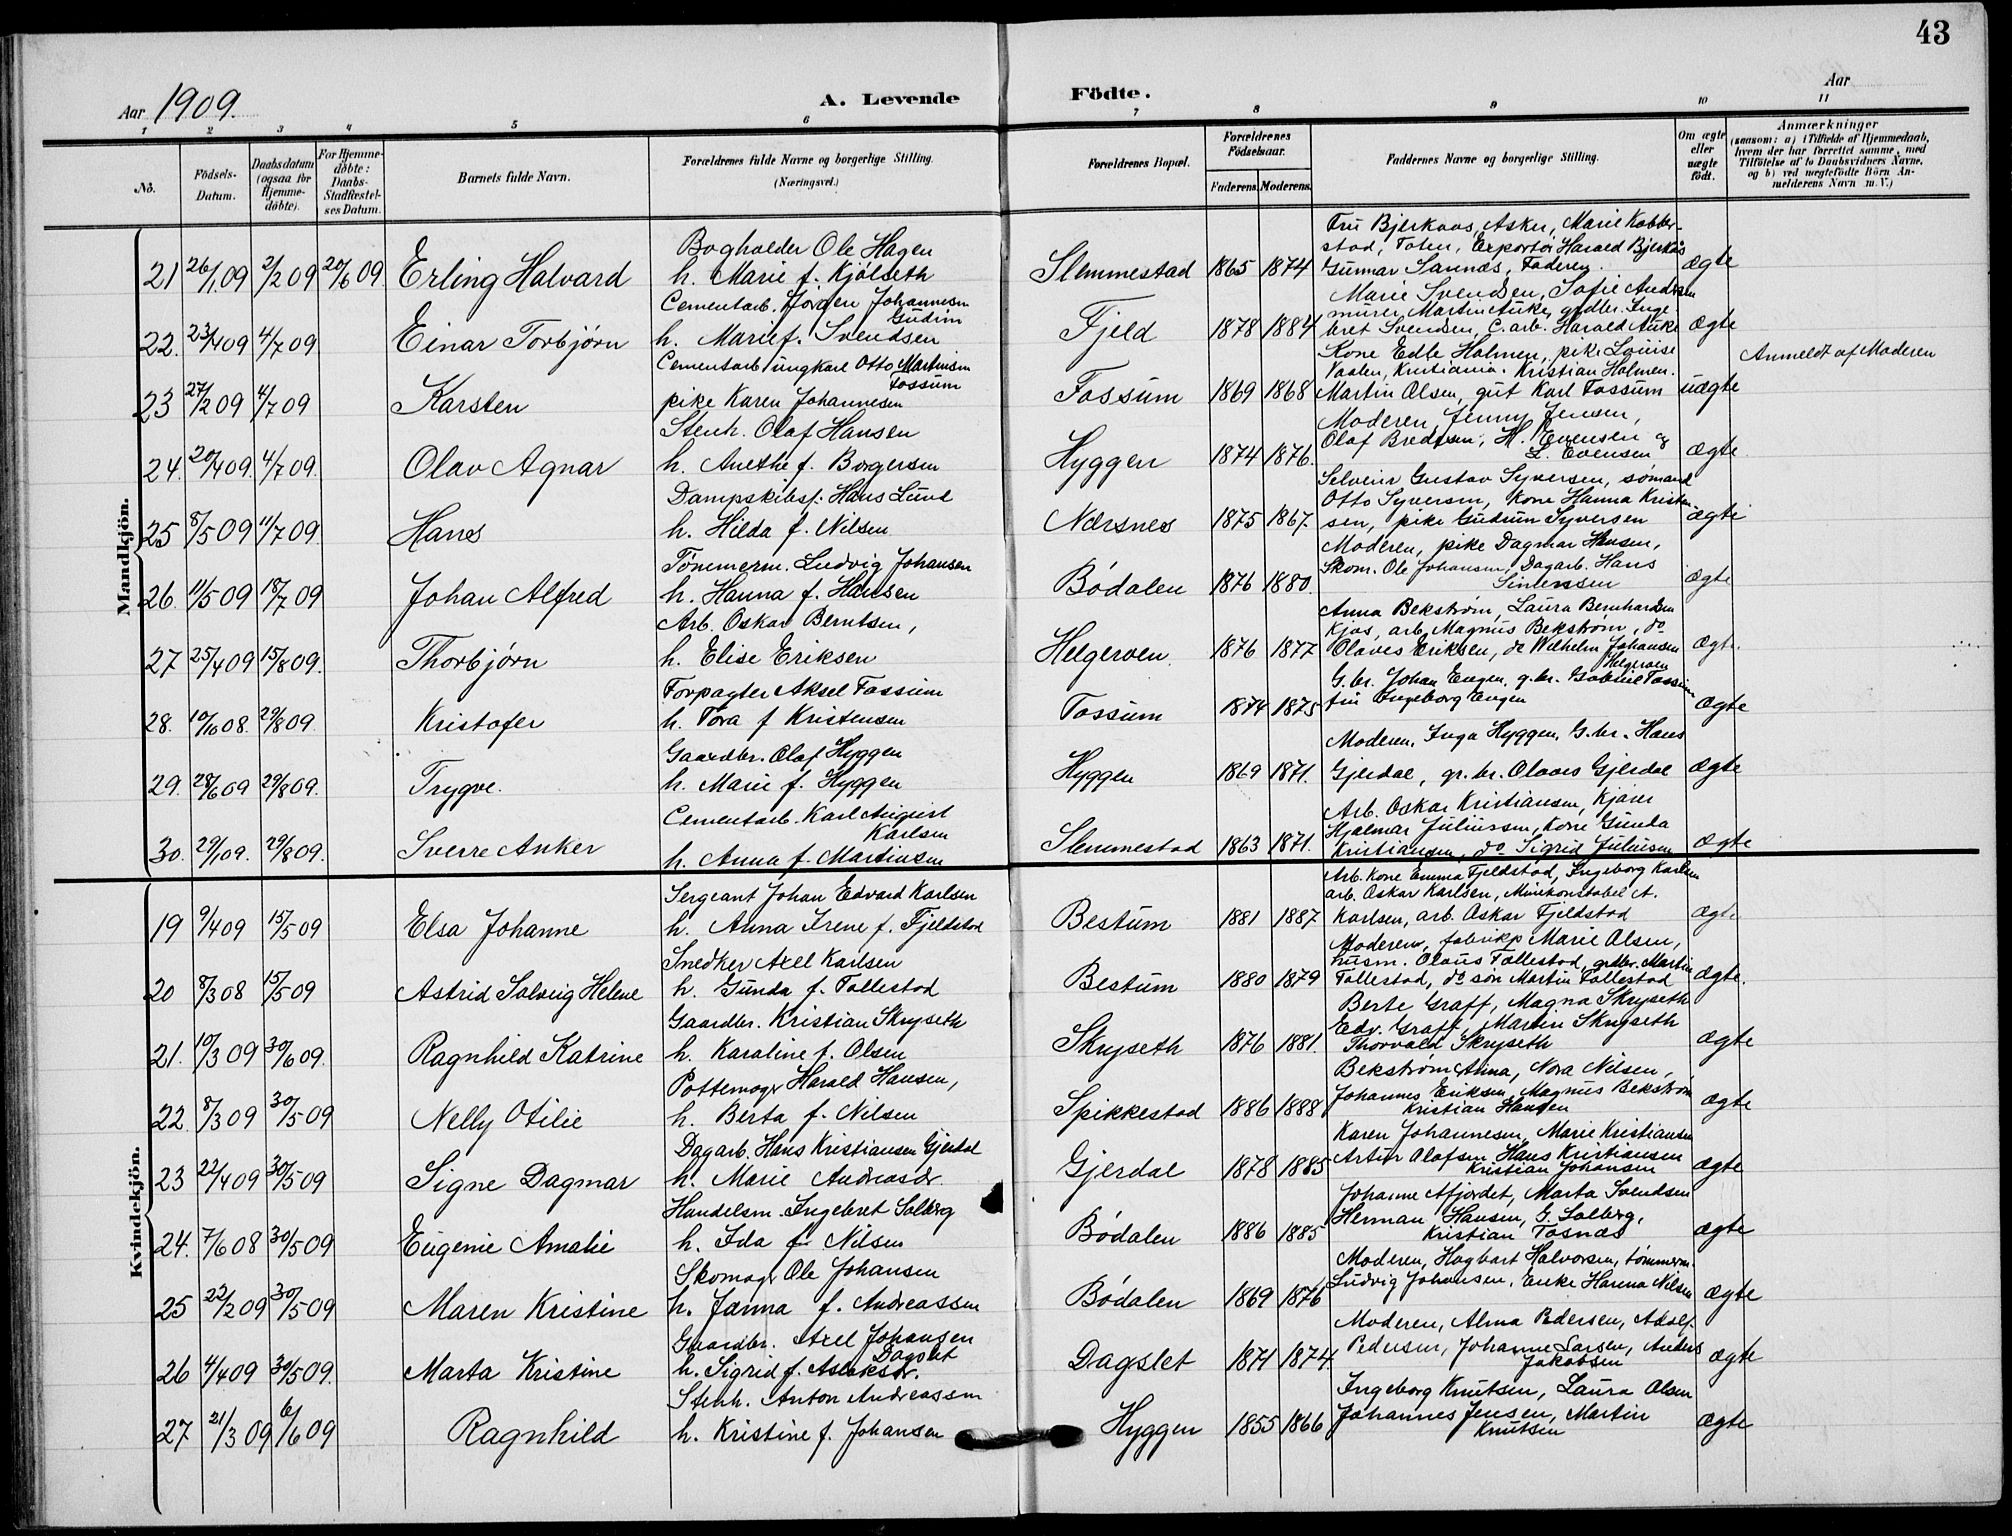 43
Aar 1909.
A. Levende Födte.
Aar
1 2 3 4 5 6 7 8 9 10 11
No.
Födsels-Datum.
Daabsdatum (ogsaa for Hjemme-döbte).
For Hjemme-döbte: Daabs-Stadfæstel-ses Datum.
Barnets fulde Navn.
Forældrenes fulde Navne og borgerlige Stilling. (Næringsvei.)
Forældrenes Bopæl.
Forældrenes Födselsaar.
Faderens. Moderens.
Faddernes Navne og borgerlige Stilling.
Om ægte eller uægte födt.
Anmærkninger
(saasom: a) i Tilfælde af Hjemmedaab, hvem der har forrettet samme, med Tilföielse af to Daabsvidners Navne, og b) ved uægtefödte Börn An-melderens Navn m. V.)
Mandkjön.
21 26/1 09 2/2 09 20/6 09 Erling Halvard
Bogholder Ole Hagen
h. Marie f. Kjölseth
Slemmestad 1865 1874
Fru Bjerkaas, Asker, Marie Kobber-
stad, Toten, Exportör Harald Bjerkås
Gunnar Sannes, Faderen.
ægte
22. 23/4 09 4/7 09 Einar Torbjørn
Cementarb. Jörgen Johannesen
Gudim
h. Marie f. Svendsen
Fjeld 1878 1884
Marie Svendsen, Sofie Andersen
murer Martin Auke, gdbr. Inge
bret Svendsen, C. arb. Harald Auke
ægte
23 27/2 09 4/7 09 Karsten
Cementarb ungkarl Otto Martinsen
Fossum
pike Karen Johannesen
Fossum 1869 1868
Kone Edle Holmen, pike Louise
Vaalen, Kristiania. Kristian Holmen.
Martin Olsen, gut Karl Fossum
uægte
Anmeldt af Moderen
24. 20/4 09. 4/7 09. Olav Agnar
Stenh. Olaf Hansen
h. Anethe f. Borgersen
Hyggen 1874 1876.
Moderen, Jenny Jensen,
Olaf Bredesen, H. Evensen og
L. Evensen
ægte
25 8/5 09 11/7 09 Hans
Dampskibsf. Hans Lund
h. Hilda f. Nilsen
Nærsnes 1875 1867.
Selveier Gustav Syversen, sömand
Otto Syversen, kone Hanna Kristen
sen, pike Gudrun Syversen
ægte
26. 11/5 09 18/7 09 Johan Alfred
Tömmerm. Ludvig Johansen
h. Hanna f. Hansen
Bödalen 1876 1880.
Moderen, pike Dagmar Hansen,
Skom. Ole Johansen, Dagarb. Hans
ægte
27 25/4 09 15/8 09. Thorbjørn
Arb. Oskar Berntsen,
h. Elise Eriksen
Helgerven 1876 1877
Anna Bekström, Laura Bernhardsen
Kjos, arb. Magnus Bekström, do
Olaves Eriksen, do Wilhelm Johansen
Helgerven
ægte
28. 10/10 08. 29/8 09. Kristofer
Forpagter Aksel Fossum
h. Tora f Kristensen
Fossum 1874 1875
G. br. Johan Engen, g. br. Gabriel Fossum
fru Ingeborg Engen
ægte
29. 28/6 09 29/8 09. Trygve.
Gaardbr. Olaf Hyggen
h. Marie f. Hyggen
Hyggen 1869 1871.
Moderen, Inga Hyggen, G. br. Hans
Gjerdal, gr. br. Olaves Gjerdal
ægte
30. 29/1 09. 29/8 09. Sverre Anker
Cementarb. Karl August
Karlsen
h. Anna f. Martinsen
Slemmestad 1863 1871.
Arb. Oskar Kristiansen, Kjörer
Hjalmar Juliussen, Kone Gunda
Kristiansen, do Sigrid Juliusen
ægte
Kvindekjön.
19 9/4 09 15/5 09 Elsa Johanne
Sergeant Johan Edvard Karlsen
h. Anna Irene f. Fjeldstad
Bestum 1881 1887
Arb. kone Emma Fjeldstad, Ingeborg Karlsen
arb. Oskar Karlsen, Minekonstabel A.
Karlsen, arb. Oskar Fjeldstad
ægte
20 8/3 08 15/5 09 Astrid Solveig Helene
Snedker Axel Karlsen
h. Gunda f. Follestad
Bestum 1880 1879
Moderen, fabrikp Marie Olsen,
husm. Olaus Follestad, grdbr. Martin
Follestad, do sön Martin Follestad
ægte.
21. 10/3 09 30/6 09. Ragnhild Katrine
Gaardbr. Kristian Skryseth
h. Karoline f. Olsen
Skryseth 1876 1881.
Berte Graff, Magna Skryseth
Edv. Graff, Martin Skryseth
Thorvald Skryseth
ægte
22 8/3 09 30/5 09 Nelly Otilie
Pottemagr Harald Hansen,
h. Berta f. Nilsen
Spikkestad 1886 1888
Bekström Anna, Nora Nilsen,
Johannes Eriksen, Magnus Bekström
Kristian Hansen
ægte
23 22/4 09 30/5 09 Signe Dagmar
Dagarb. Hans Kristiansen Gjerdal
h. Marie Andreasdr.
Gjerdal 1878 1885
Karen Johannesen, Marie Kristiansen
Artur Olafsen Hans Kristiansen
Kristian Johansen
ægte
24. 7/6 08 30/5 09 Eugenie Amalie
Handelsm. Ingebret Solberg
h. Ida f. Nilsen
Bödalen 1886 1885
Johanne Afjordet, Marta Svendsen
Herman Hansen, G. Solberg,
Kristian Tosnæs
ægte
25 22/2 09 30/5 09 Maren Kristine
Skomagr Ole Johansen
h. Janna f. Andreassen
Bödalen 1869 1876
Moderen, Hagbart Halvorsen, tömmerm.
Ludvig Johansen, Enke Hanna Nilsen
ægte
26 4/4 09 30/5 09. Marta Kristine
Gaardbr. Axel Johansen
Dagslet
h. Sigrid f. Aslaksdr.
Dagslet 1871 1874.
Moderen, Alma Pedersen, Adolf
Pedersen, Johanne Larsen, Anders
Jakobsen
ægte
27 21/3 09 6/6 09 Ragnhild
Stenh. Anton Andreassen
h. Kristine f. Johansen
Hyggen 1855 1866
Ingeborg Knutsen, Laura Olsen
Johannes Jensen, Martin
Knutsen
ægte